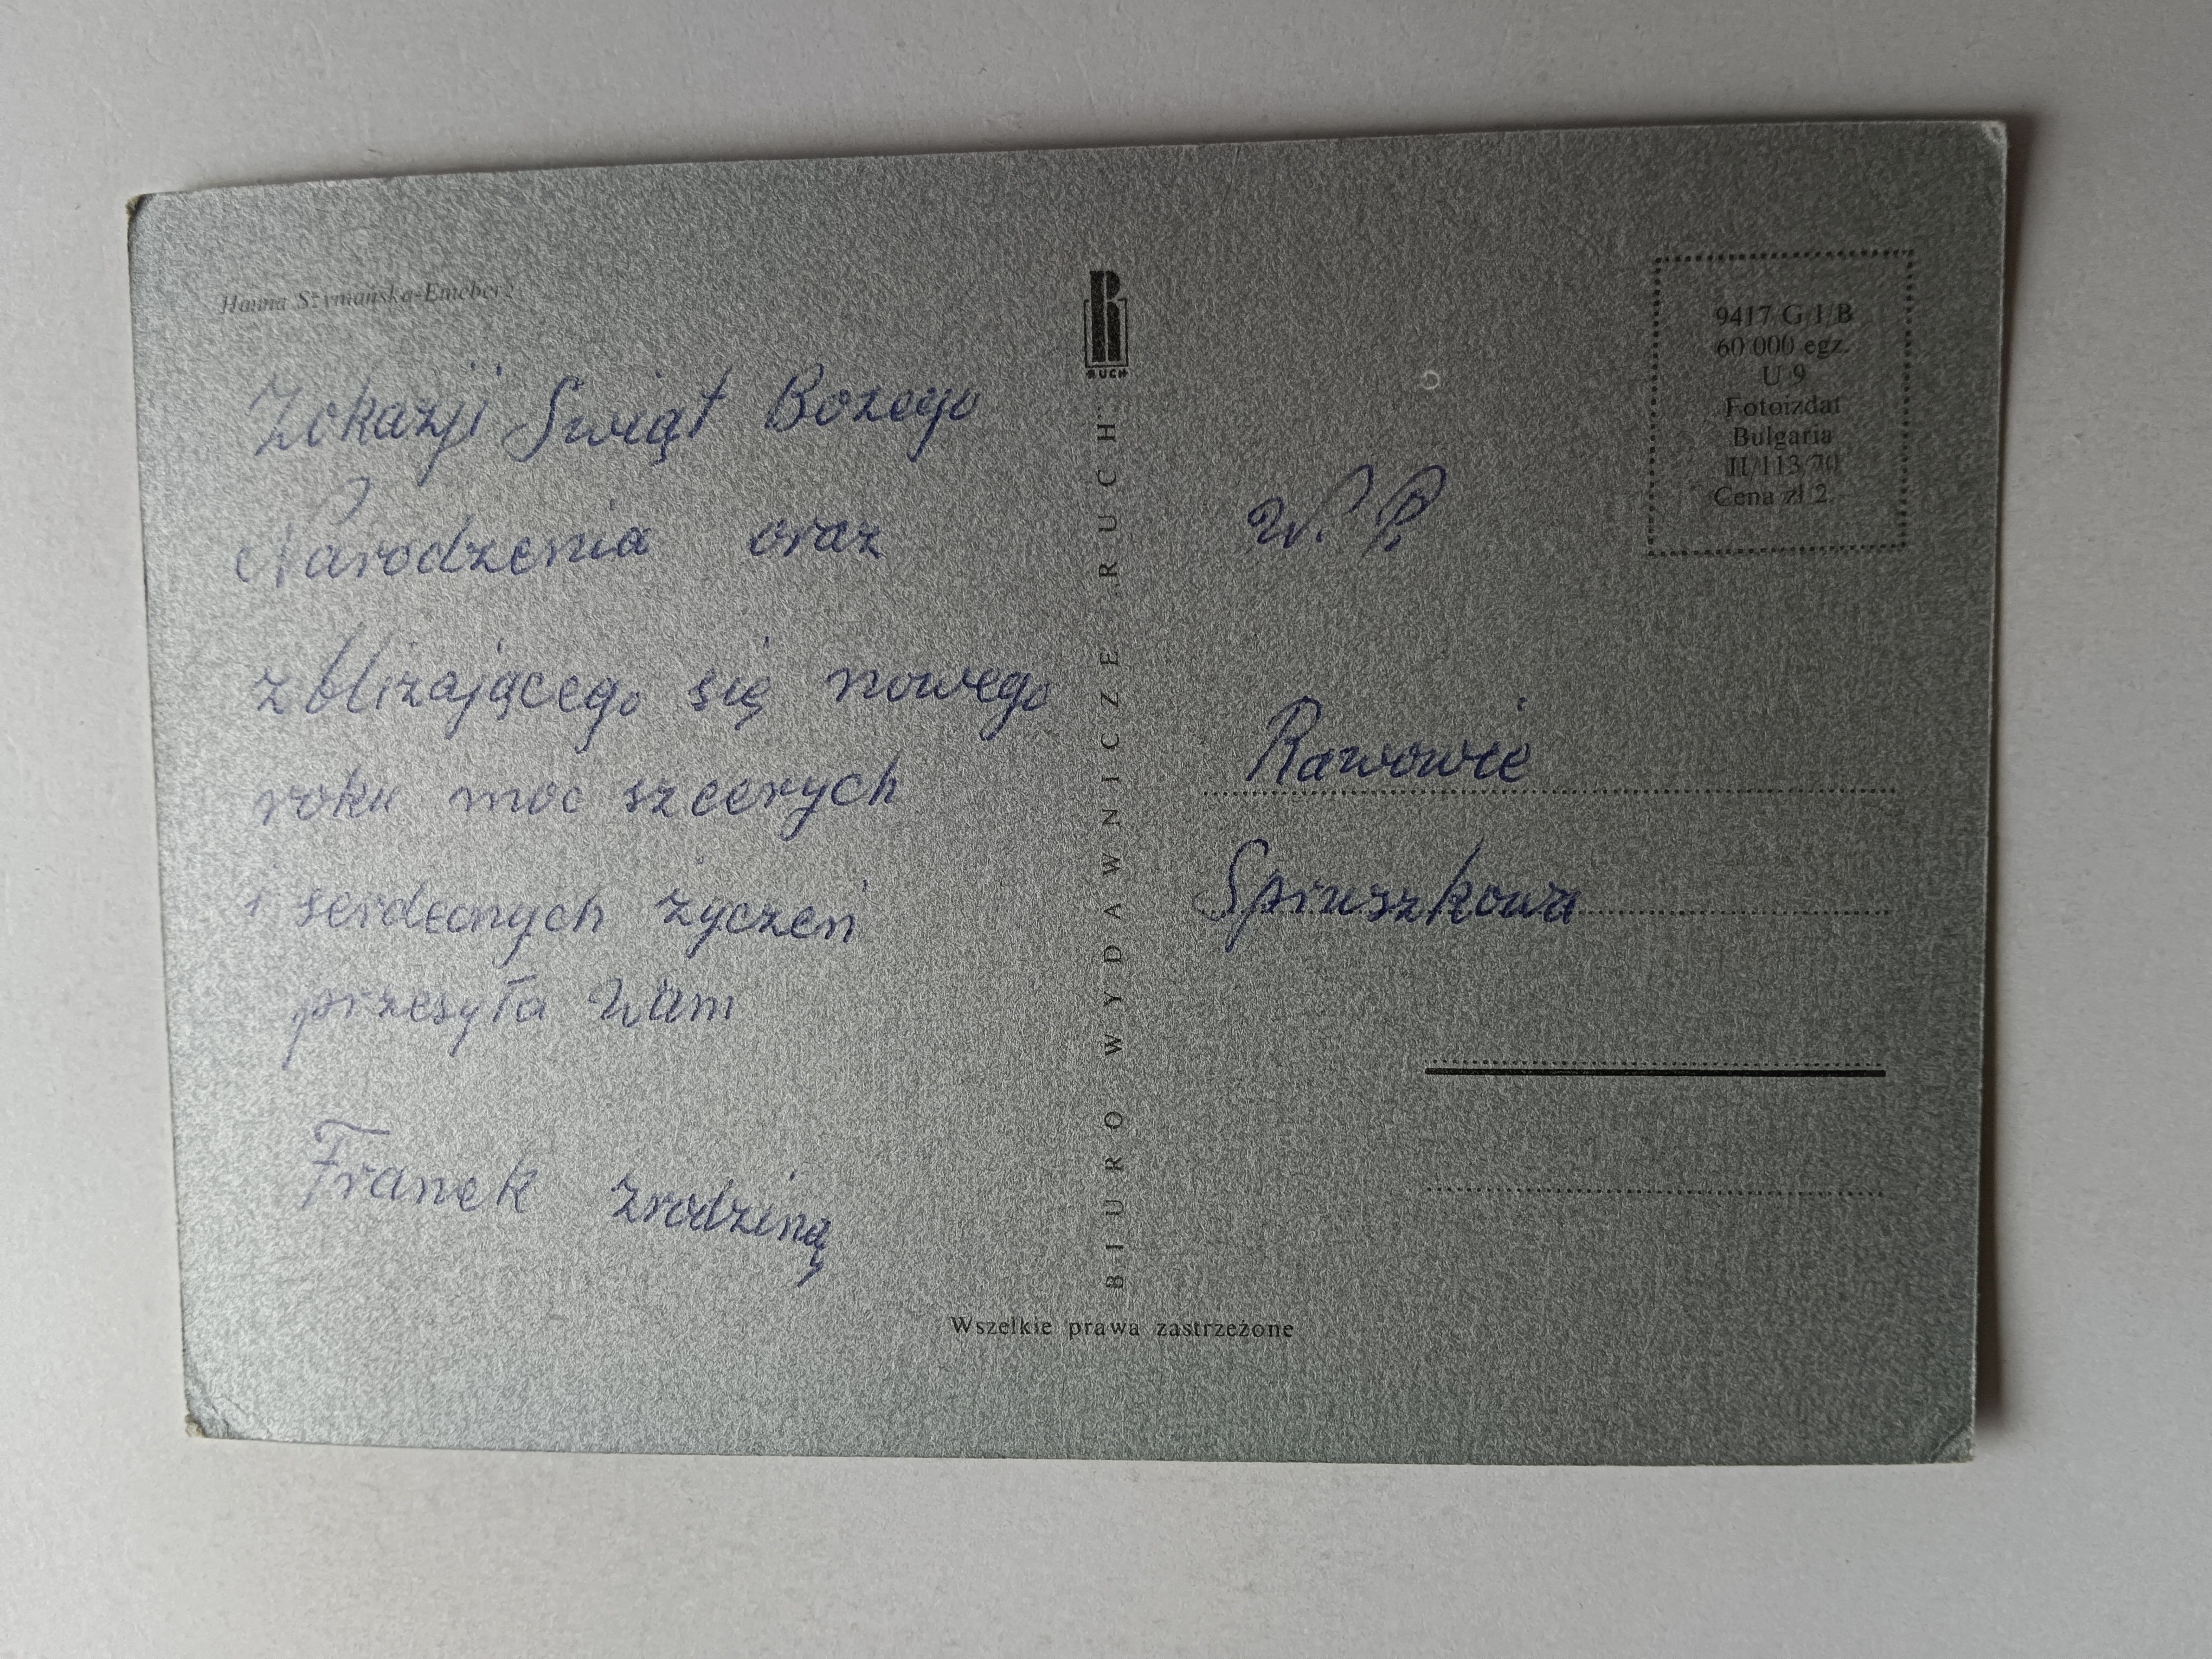 Hanna Szymańska-Emeberz
Zokazji Swiąt Bozego
Narodzenia oraz
zblizającego się nowego
roku moc szcerych
i serdecnych życzeń
przesyła Wam
Franek zrodziną
RUCH
BIURO WYDAWNICZE „RUCH”
9417 G/I/B
60 000 egz.
U 9
Fotoizdat
Bulgaria
II/113/70
Cena zł 2.
W. P.
Rawowie
Spruszkowa
Wszelkie prawa zastrzeżone